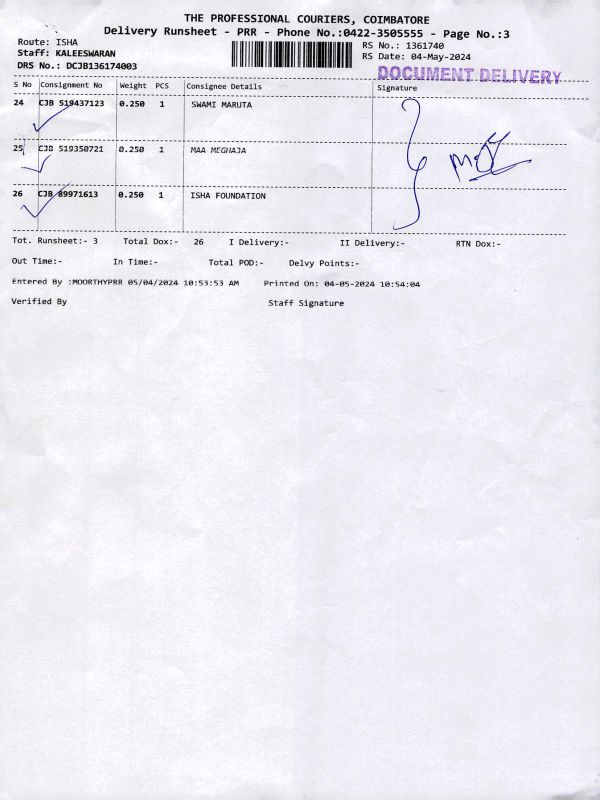 THE PROFESSIONAL COURIERS, COIMBATORE
Delivery Runsheet - PRR - Phone No.:0422-3505555 - Page No.:3
Route: ISHA
RS No.: 1361740
Staff: KALEESWARAN
RS Date: 04-May-2024
DRS No.: DCJB136174003
DOCUMENT DELIVERY
S No Consignment No Weight PCS Consignee Details Signature
24 CJB 519437123 0.250 1 SWAMI MARUTA
25 CJB 519350721 0.250 1 MAA MEGHAJA
26 CJB 89971613 0.250 1 ISHA FOUNDATION
Tot. Runsheet:- 3 Total Dox:- 26 I Delivery:- II Delivery:- RTN Dox:-
Out Time:- In Time:- Total POD:- Delvy Points:-
Entered By :MOORTHYPRR 05/04/2024 10:53:53 AM Printed On: 04-05-2024 10:54:04
Verified By Staff Signature